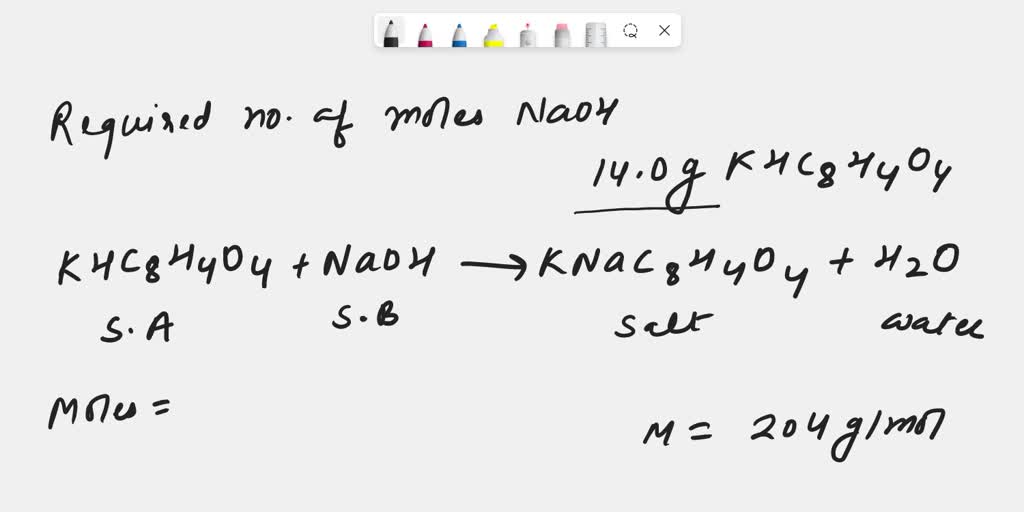 Required no. of moles NaOH
14.0g KHC8H4O4
KHC8H4O4 + NaOH → KNaC8H4O4 + H2O
S.A S.B Salt water
Moles =
M = 204 g/mol